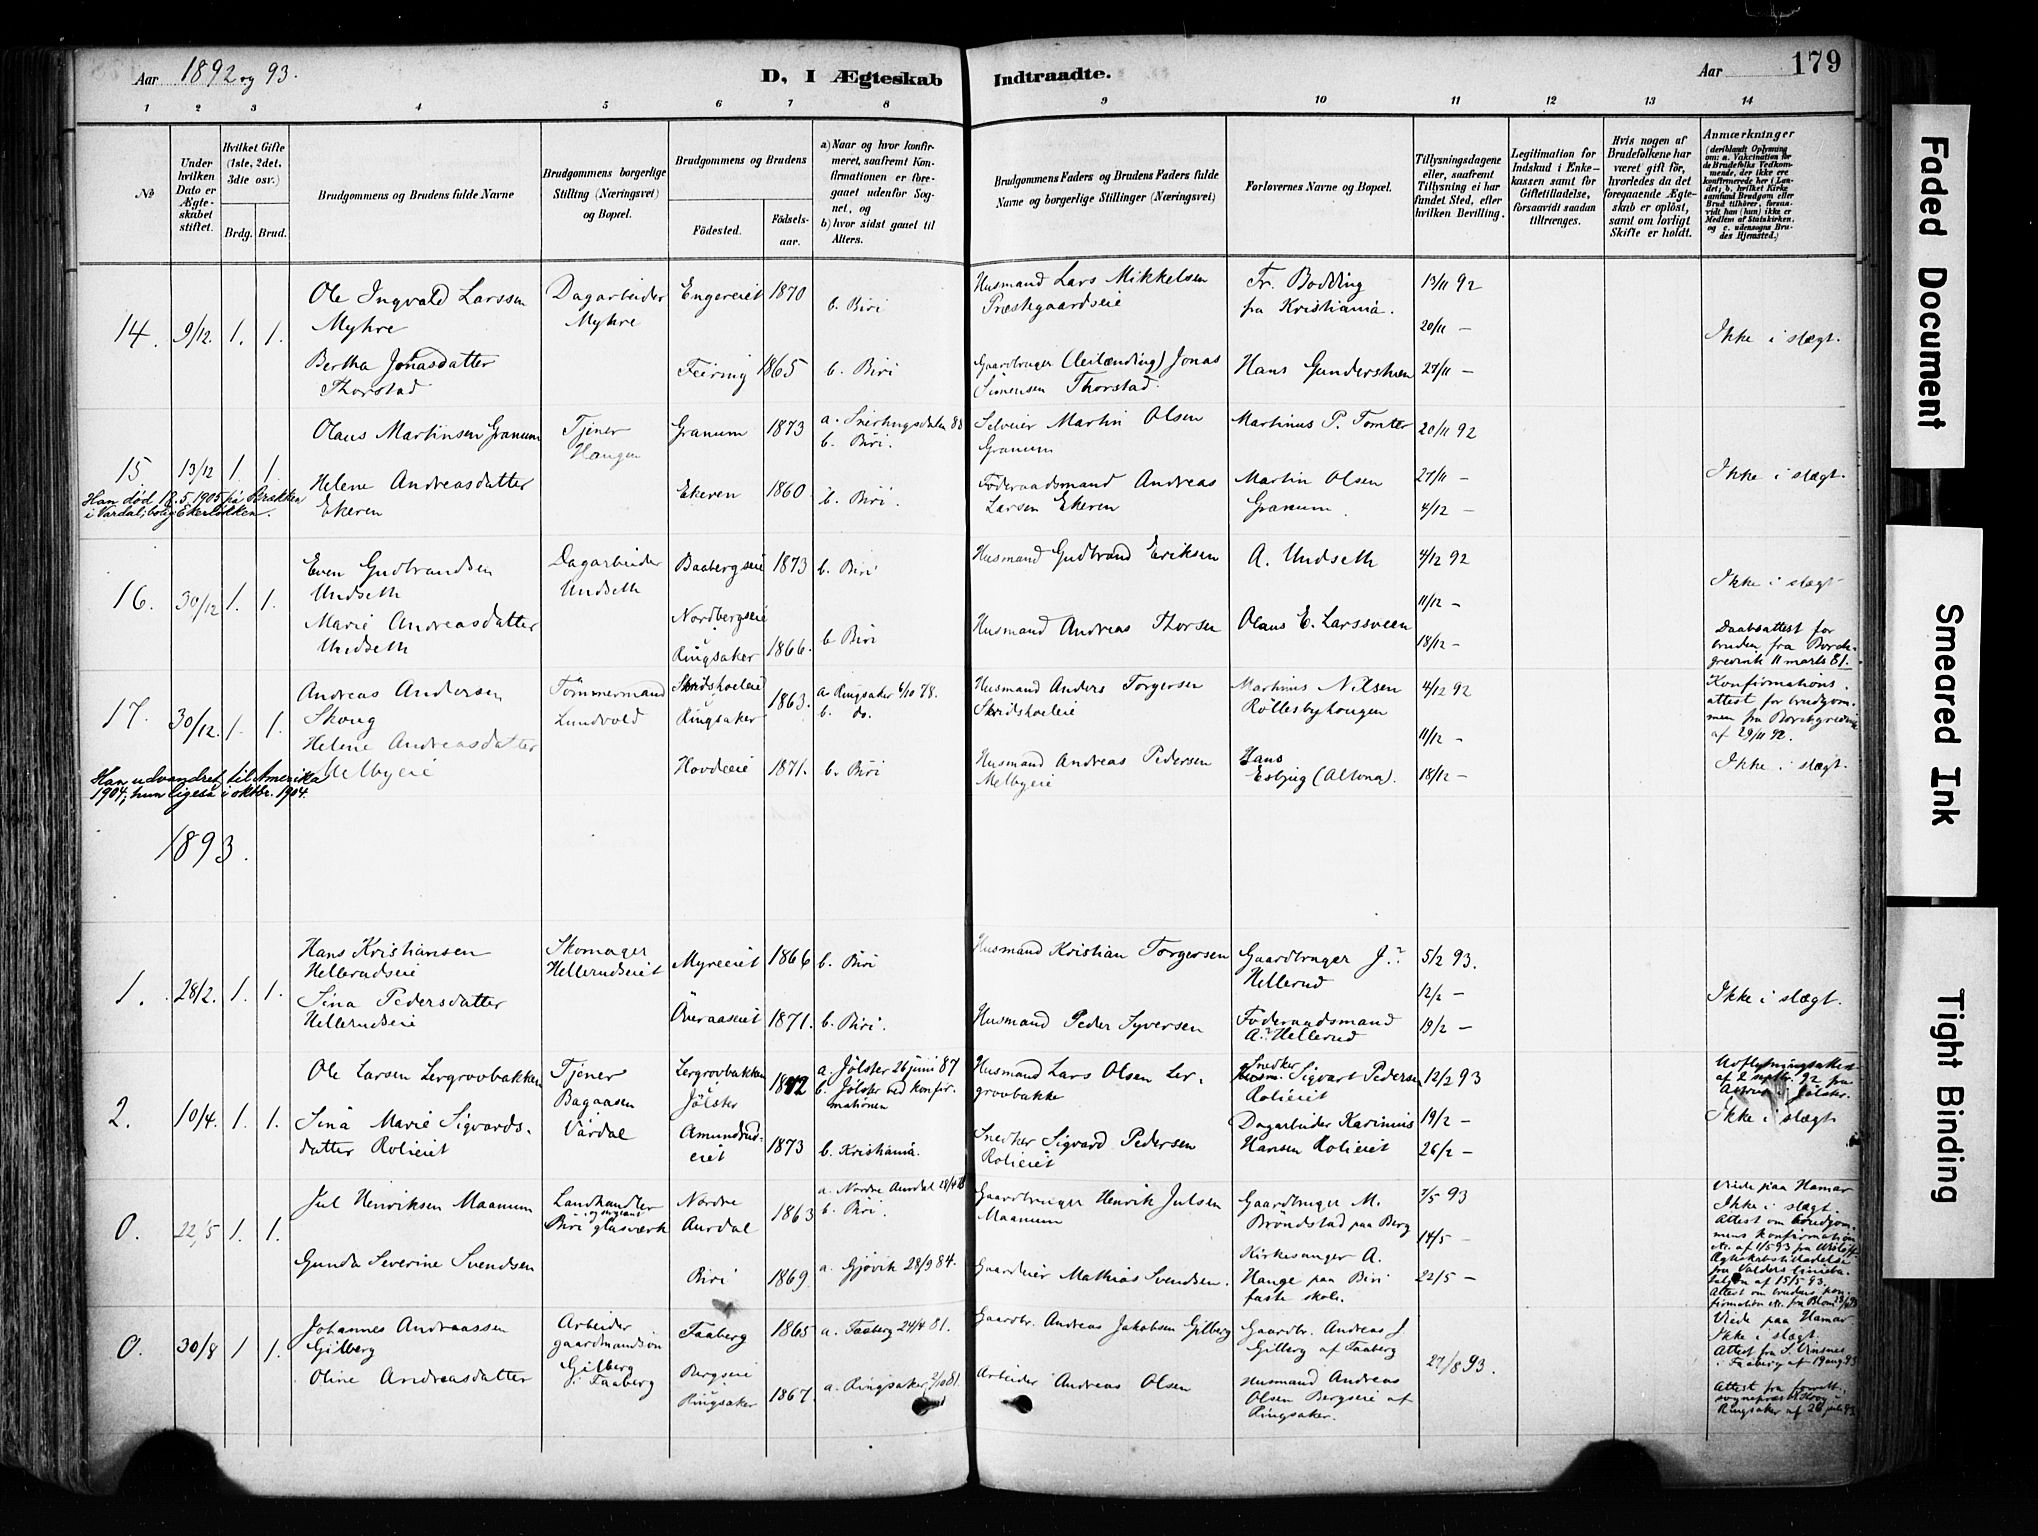 Aar 1892 og 93.
D, I Ægteskab Indtraadte.
Aar 179
1 2 3 4 5 6 7 8 9 10 11 12 13 14
No
Under hvilken Dato er Ægteskabet stiftet.
Hvilket Gifte (1ste, 2det, 3die osv.)
Brdg. Brud.
Brudgommens og Brudens fulde Navne
Brudgommens borgerlige Stilling (Næringsvei) og Bopæl.
Brudgommens og Brudens
Fødested.
Fødselsaar.
a) Naar og hvor konfirmeret, saafremt Konfirmationen er foregaaet udenfor Sognet, og
b) hvor sidst gaaet til Alters.
Brudgommens Faders og Brudens Faders fulde Navne og borgerlige Stillinger (Næringsvei)
Forlovernes Navne og Bopæl.
Tillysningsdagene eller, saafremt Tillysning ei har fundet Sted, efter hvilken Bevilling.
Legitimation for Indskud i Enkekassen samt for Giftetilladelse, forsaavidt saadan tiltrænges.
Hvis nogen af Brudefolkene har været gift før, hvorledes da det foregaaende Ægteskab er opløst, samt om lovligt Skifte er holdt.
Anmærkninger
(deriblandt Oplysning om: a. Vakcination for de Brudefolks Vedkommende, der ikke ere konfirmerede her i Landet; b. hvilket Kirkesamfund Brudgom eller Brud tilhører, forsaavidt han (hun) ikke er Medlem af Statskirken, og c. udensogns Brudes Hjemsted.)
14. 9/12. 1. 1.
Ole Ingvald Larssen
Myhre
Dagarbeider
Myhre
Engereiet 1870
b. Biri
Husmand Lars Mikkelsen
Præstgaardseie
Fr. Bodding
fra Kristiania.
13/11 92
20/11 –
Ikke i slægt.
Bertha Jonasdatter
Thorstad
Feiring 1865
b. Biri
Gaardbruger (Leilænding) Jonas
Simensen Thorstad.
Hans Gundershuen
27/11 –
15 13/12 1. 1.
Olaus Martinsen Granum
Tjener
Haugen
Granum 1873
b. Biri.
Selveier Martin Olsen
Granum
Martinus P. Tomter
20/11 92
Helene Andreasdatter
Ekeren
Ekeren 1860
b. Biri.
Føderaadsmand Andreas
Larsen Ekeren
Martin Olsen
Granum
27/11 –
4/12 –
Ikke i slægt.
Han død 18.5.1905 på Brækken
i Vardal; bolig Ekerløkken.
16. 30/12 1. 1.
Even Gudbrandsen
Undseth
Dagarbeider
Undseth
Baabergseie 1873
b. Biri
Husmand Gudbrand Eriksen
A. Undseth
4/12 92
11/12 –
Ikke i slægt
Marie Andreasdatter
Undseth
Nordbergseie
Ringsaker 1866.
b. Biri
Husmand Andreas Thorsen
Olaus E. Larssveen
18/12 –
Daabsattest for
bruden fra
11 marts 81.
17. 30/12. 1. 1.
Andreas Andersen
Skoug
Tømmermand
Lundvold
Skridshoeleie
Ringsaker 1863.
a. Ringsaker 6/10 78.
b. do.
Husmand Anders Torgersen
Skridshoeleie
Martinus Nilsen
Röllesbyhougen
4/12 92
11/12 –
Konfirmationsattest for brudgommen fra
af 29/11 92.
Helene Andreasdatter
Melbyeie
Hovdeeie 1871.
b. Biri
Husmand Andreas Pedersen
Melbyeie
Hans
Esbjug (Altona).
18/12 –
Ikke i slægt.
Han udvandret til Amerika
1904; hun ligeså i oktbr. 1904.
1893.
1. 28/2. 1. 1.
Hans Kristiansen
Hellerudseie
Skomager
Hellerudseiet
Myreeiet 1866
b. Biri
Husmand Kristian Torgersen
Gaardbruger J.
Hellerud
5/2 93.
12/2 –
Ikke i slægt.
Sina Pedersdatter
Hellerudseie
Överaaseiet 1871.
b. Biri.
Husmand Peder Syversen
Föderaadsmand
A. Hellerud
19/2 –
2. 10/4. 1. 1.
Ole Larsen Lergrovbakken
Tjener
Bagaasen
Vardal
Lergrovbakken
Jölster 1872
a. Jölster 26 juni 87
b. Jölster ved konfirmationen
Husmand Lars Olsen Lergrovbakke
Snedker
Sigvart Pedersen
Rolieiet
12/2 93
19/2 –
Udflytningsattest
af 2 septbr. 92 fra
Jölster.
Ikke i slægt
Sina Marie Sigvardsdatter Rolieiet
Amundrudeiet 1873
b. Kristiania.
Snedker Sigvard Pedersen
Rolieiet
Dagarbeider Karinius
Hansen Rolieiet
26/2 –
0. 22/5 1. 1.
Jul Henriksen Maanum
Landhandler
Biri glasværk
Nordre
Aurdal 1863
a. Nordre Aurdal
b. Biri.
Gaardbruger Henrik Julsen
Maanum
Gaardbruger M.
Bröndstad paa Berg
7/5 93
14/5 –
Viede paa Hamar
Ikke i slægt.
Attest om brudgommens konfirmation
af 1/5 93
Ægteskabstilladelse
fra Valders
af 15/5 93.
Gunda Severine Svendsen
Biri 1869
a. Gjövik 28/9 84.
Gaardeier Mathias Svendsen.
Kirkesanger A.
Hauge paa Biri
faste skole.
22/5 –
Attest om brudens konfirmation
0. 30/8 1 1.
Johannes Andreassen
Gilberg
Arbeider
gaardmandssön
Gilberg
i Faaberg
Faaberg 1865
a. Faaberg 24/4 81.
Gaardbr. Andreas Jakobsen Gilberg
Gaardbr. Andreas J.
Gilberg af Faaberg
27/8 93.
Viede paa Hamar
Ikke i slægt.
Attest fra
Faaberg af 19 aug 93
Oline Andreasdatter
Bergseie
Ringsaker 1867.
a. Ringsaker 2/10 81.
Arbeider Andreas Olsen
Husmand Andreas
Olsen Bergseie af
Ringsaker.
Attest fra
Ringsaker af 26 juli 93
Faded Document
Smeared Ink
Tight Binding